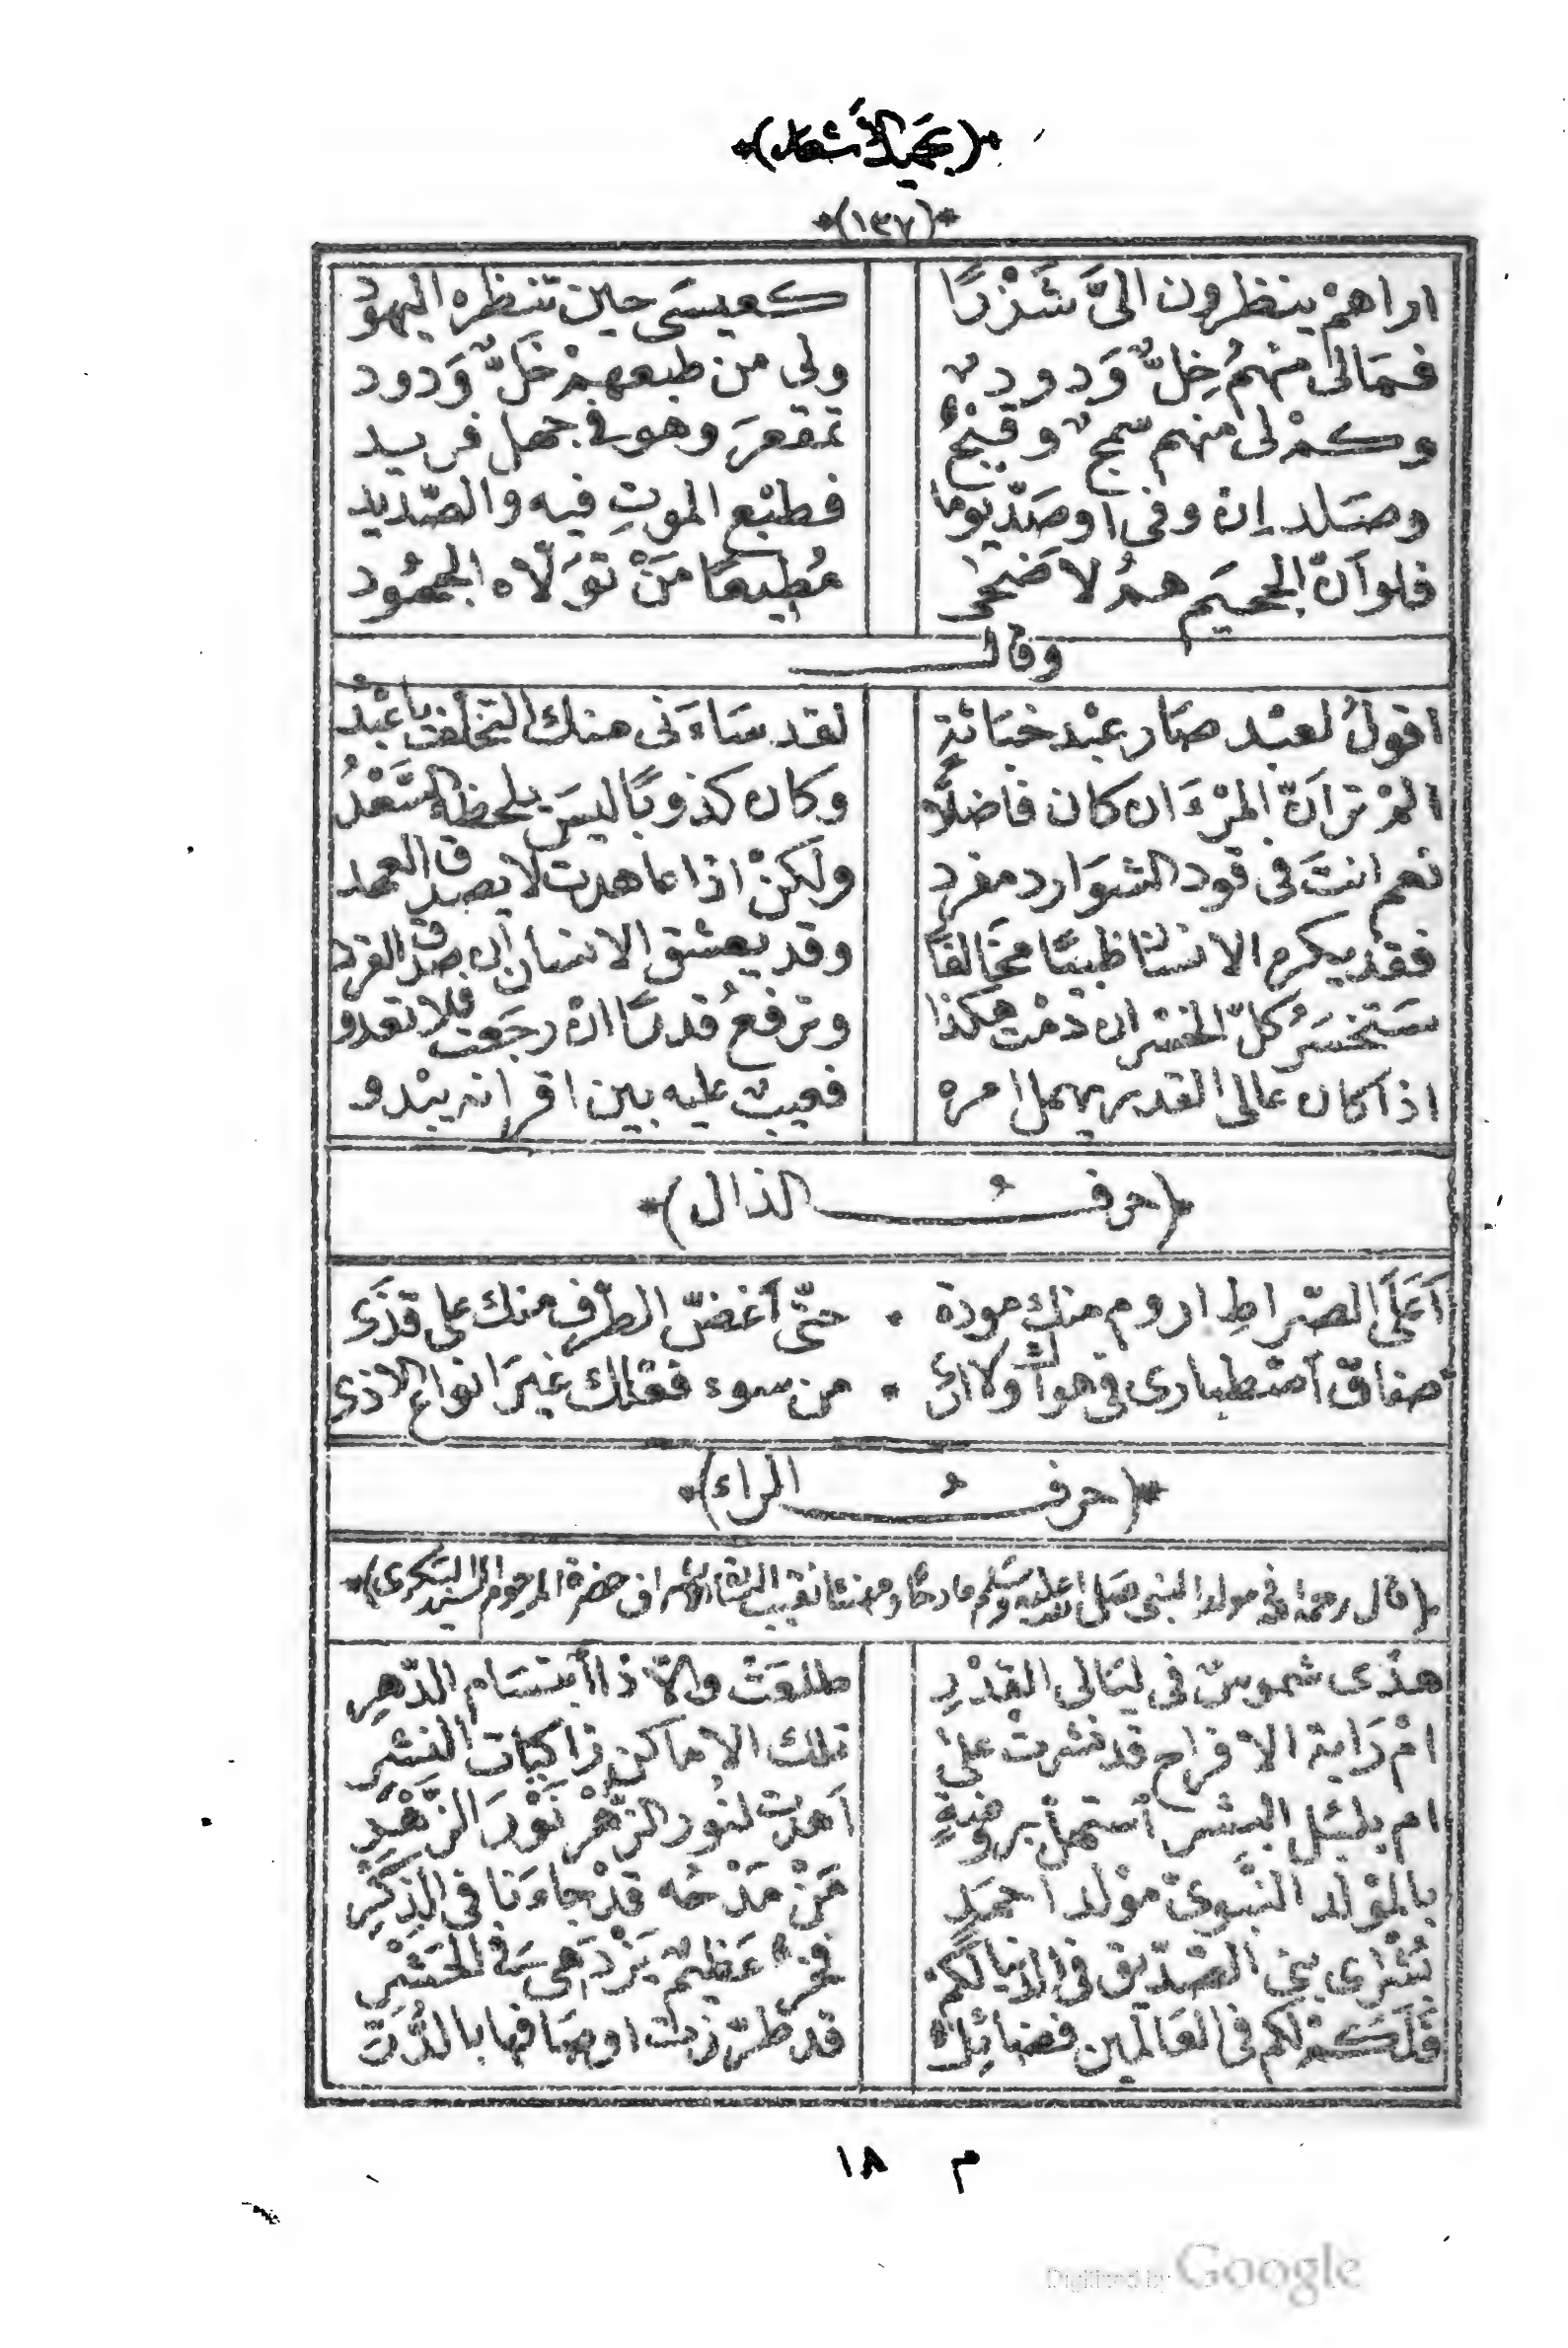 *(بحميد الأشعار)*
*(١٣٧)*
اراهمْ ينظرون الىَّ شَزْرًا كعيسَى حين تنظره اليهودُ
فمَالى منهمُ خِلٌّ وَدودٌ ولى من طبعهمْ خَلٌّ وَدود
وكمْ لى منهم سمجٌ وقبْحٌ تمقعرَ وهو فى جهل فريد
وصَلد إن وفى اوصَدّ يوما فطبْع الموتِ فيه والصّديد
فلو اَنّ الجحيَم همُ لاضحَى مُطيعًا مَنْ تَوَلّاه الجحُود
وقال
اقولُ لعبْد صَار عبْد خبَاثةٍ لقد سَاءَ نى منك التخلّف يا عبْدُ
المْ ترَ اَنّ المرْءَ ان كان فاضلًا وكان كذوبًا ليسَ يلحظه السَّعْدُ
نعم انتَ فى قود الشوَارد مفرد ولكنْ اذا عاهدت لا يصدق العهد
فقد يكرم الانسَا ظبيًا مخَالفًا وقد يعشق الانسان ان صدق القرد
ستخسَرُ كلّ الخسْر ان دمْت هكذا وترفعُ قدرًا انْ رجَعت فلا تعدو
اذا كان عالى القدر يهمل امره فعيبٌ عليه بين اقرانه يبْدو
*(حرفُ الذال)*
اَعَلَى الصّراطِ اروم منك مودة • حتّى اَغضّ الطرْف منك على قذَى
ضاق اصْطبارى فى هواك ولا ارى • من سوء فعْلك غيرَ انواع الاذى
*(حرفُ الراء)*
(قال رحمه الله فى مولد النبى صلى الله عليه وسلم مادحًا ومهنئا نقيب السّادة الاشراف حضرة المرحوم السّيد البكرى)*
هذى شموسٌ فى ليَالى القدْرِ طلعَتْ والّا ذا ابتسَام الدّهرِ
امْ رَاية الافراح قد نشرتْ على تلك الاماكن زاكيَات النشرِ
ام بلبُل البشر استهلّ بروضةٍ اَهدَتْ لنُور الزّهْر نَوْرَ الزّهْرِ
بالموْلد النّبَوىّ موْلد احمَدٍ مَنْ مَدْحُه قدْ جاءَنا فى الذِكْرِ
بُشْراى بنى الصّدّيق فى الدّنيا لكمْ فخرٌ عَظيمٌ يَزْدَهى فى الحَشْرِ
فَلَكمْ لكم فى العَالَمين فضَائِلٌ قد طرّزت اوصَافها بالدُّرِّ
م ١٨
Digitized by Google